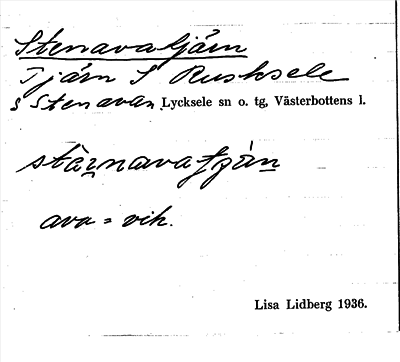 Stenavatjärn
Tjärn S Rusksele
s Stenavan. Lycksele sn o. tg, Västerbottens l.
ava = vik.
Lisa Lidberg 1936.